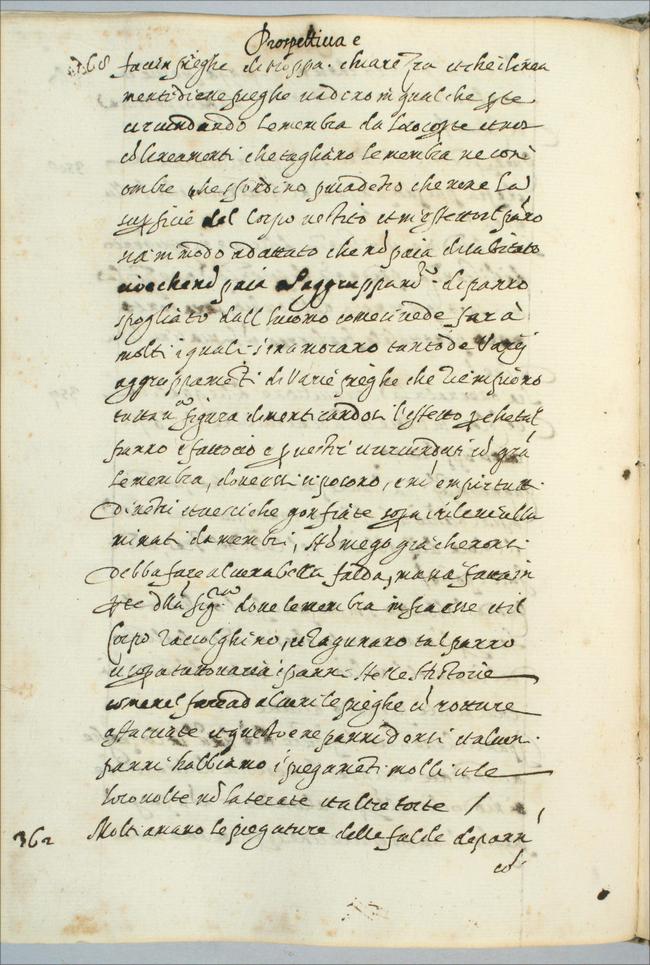 Prospettiua e
faccin pieghe di troppa chiarezza et che i linea
menti di ene pieghe uadino in qualche pte
circundando le membra da loro coperte et non
cō lineamenti che taglino le membra ne con
ombre che sfondino piu adētro che non e la
supficie del corpo uestito et in effetto il pāno
sia in modo adattato che nō paia disabitato
cioe che nō paia aggruppam.to di panno
spogliato dall huomo come si uede fare à
molti i quali s'inamorano tanto de Varij
aggruppamēti di Varie pieghe che n'empiono
tutta una figura dimenticandosi l'effetto p che tal
panno e fatto cio e p uestire et circundare cō gra
le membra, doue essi si posono, e nō empire tutti
di uētri et uesciche gonfiate sopra i rileui allu
minati da membri, Nō niego gia che non si
debba fare alcuna bella falda, ma sia fatta in
pte dlla fig.ra doue le membra infra esse et il
Corpo raccolghino, et ragunano tal panno
e sopa tutto uaria i panni nelle Historie
come nel fare ad alcuni le pieghe cō rotture
affacciate et questo e ne panni densi et alcun
panni habbiamo i piegamēti molli et le
loro uolte nō laterate et altre torte /
362 Molti amano le piegature delle falde de pann
cō